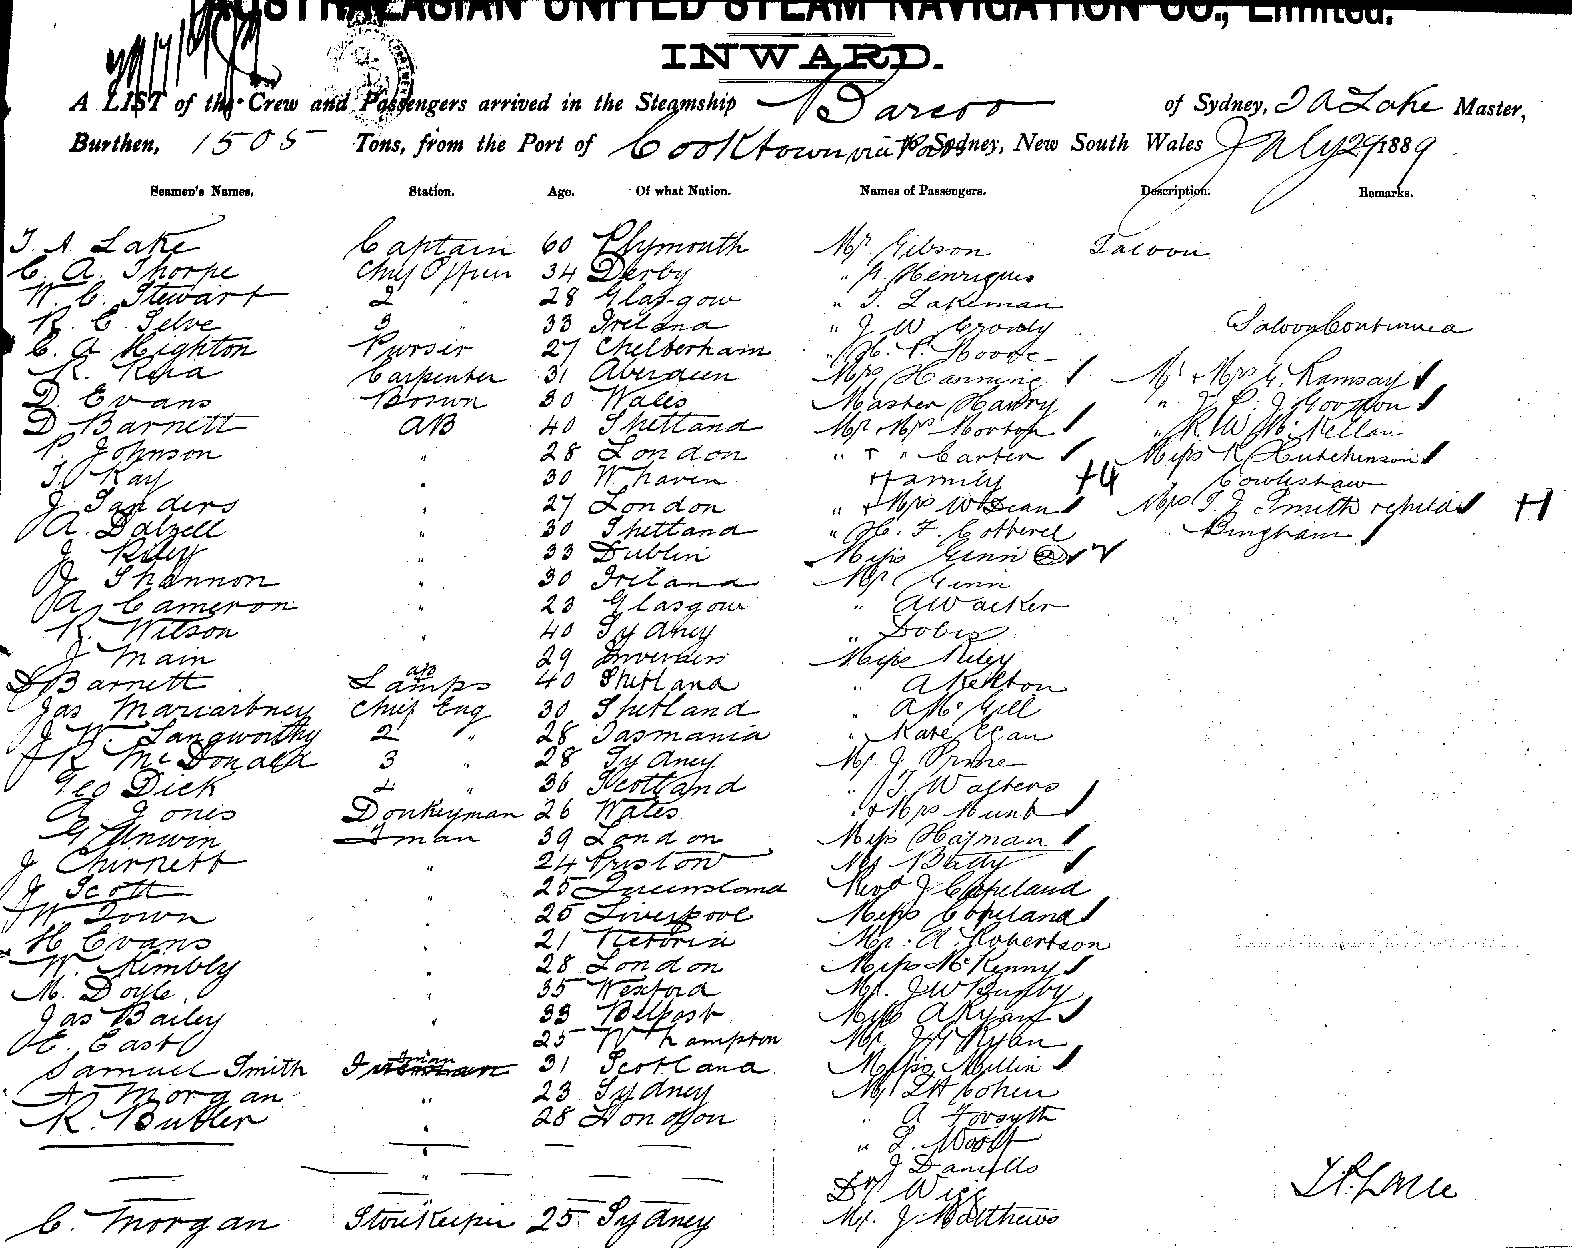 AUSTRALASIAN UNITED STEAM NAVIGATION CO., Limited.
INWARD.
A LIST of the Crew and Passengers arrived in the Steamship Barcoo of Sydney, T A Lake Master,
Burthen, 1505 Tons, from the Port of Cooktown via Ports to Sydney, New South Wales July 29 1889
Seamen's Names. Station. Age. Of what Nation. Names of Passengers. Description. Remarks.
T. A. Lake Captain 60 Plymouth Mr Gibson Saloon
C. A. Thorpe Chief Officer 34 Derby " Henriques
W. C. Stewart 2 " 28 Glasgow " T. Lakeman
R. E. Selve 3 " 33 Ireland " J W Crowdy Saloon Continued
C. A. Highton Purser 27 Cheltenham
R. Carpenter 31 Aberdeen Mrs Hanning Mr + Mrs G. Ramsay
D. Evans Bosun 30 Wales Master Harry " J. Gordon
D Barnett AB 40 Shetland Mr + Mrs Morton " R W McKellan
P. Johnson " 28 London " + " Carter Miss K Hutchinson
T. Kay " 30 W'haven + family +4 Cowlishaw
J Sanders " 27 London " + Mrs W Dean Mrs T. J. Smith
A. Dalzell " 30 Shetland " H. F. Cotterel Bingham
J Riley " 33 Dublin Miss Ginn
J. Shannon " 30 Ireland Mr Ginn
A. Cameron " 23 Glasgow " A Walker
R. Wilson " 40 Sydney " Dobie
J Main 29 Miss Riley
D Barnett Lamps AB 40 Shetland "
Jas Macartney Chief Eng 30 Shetland " A McGill
J. W. Langworthy 2 " 28 Tasmania " Kate Egan
R McDonald 3 " 28 Sydney Mr. J.
Geo Dick 4 " 36 Scotland " T. Walters
Jones Donkeyman 26 Wales " + Mrs Hunt
G Unwin Fman 39 London Miss Hayman
J Churnett " 24 Bristow
J Scott 25 Queensland Revd J Copeland
W. Town " 25 Liverpool Miss Copeland
H Evans " 21 Victoria Mr. A. Robertson
W. Kimbly " 28 London Miss McKenny
M. Doyle " 35 Wexford Mr. J W
Jas Bailey " 33 Belfast Miss A Ryan
E. East 25 W'hampton Mr Ryan
Samuel Smith Fman 31 Scotland Miss Mellin
Morgan " 23 Sydney Mr Cohen
R. Butler " 28 London " A Forsyth
" L. Woolf
J Daniells
Dr Wigg
C. Morgan Storekeeper 25 Sydney Mr. J Matthews